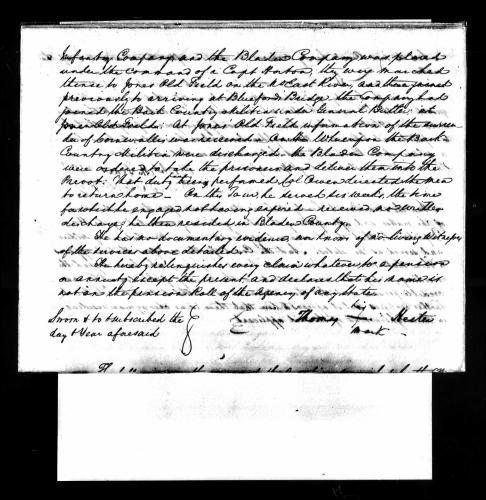 Infantry Company and the Bladen Company was placed
under the command of a Capt Horton, they were marched
thense to Jones Old Field on the N East River, and there joined
previously to arriving at Blueford Bridge, the Company had
joined the Back Country Militia under General Butler at
Jones Old Fields. At Jones Old Field information of the surren-
der of Cornwallis was received on the Back
Country Militia were discharged. The Bladen Company
were ordered to take the prisoners and deliver them into the
Provost. That duty being performed Col Owen directed the men
to return home. On this Tour he served six weeks, the time
for which he engaged not having expired received no written
discharge; he then resided in Bladen County.
He has no documentary evidence nor knows of no living witnesses
of the services above detailed.
He hereby relinquishes every claim whatever to a pension
or annuity except the present and declares that his name is
not on the pension Roll of the Agency of any State.
Sworn to & subscribed the
day & Year aforesaid
Thomas his Hester
mark